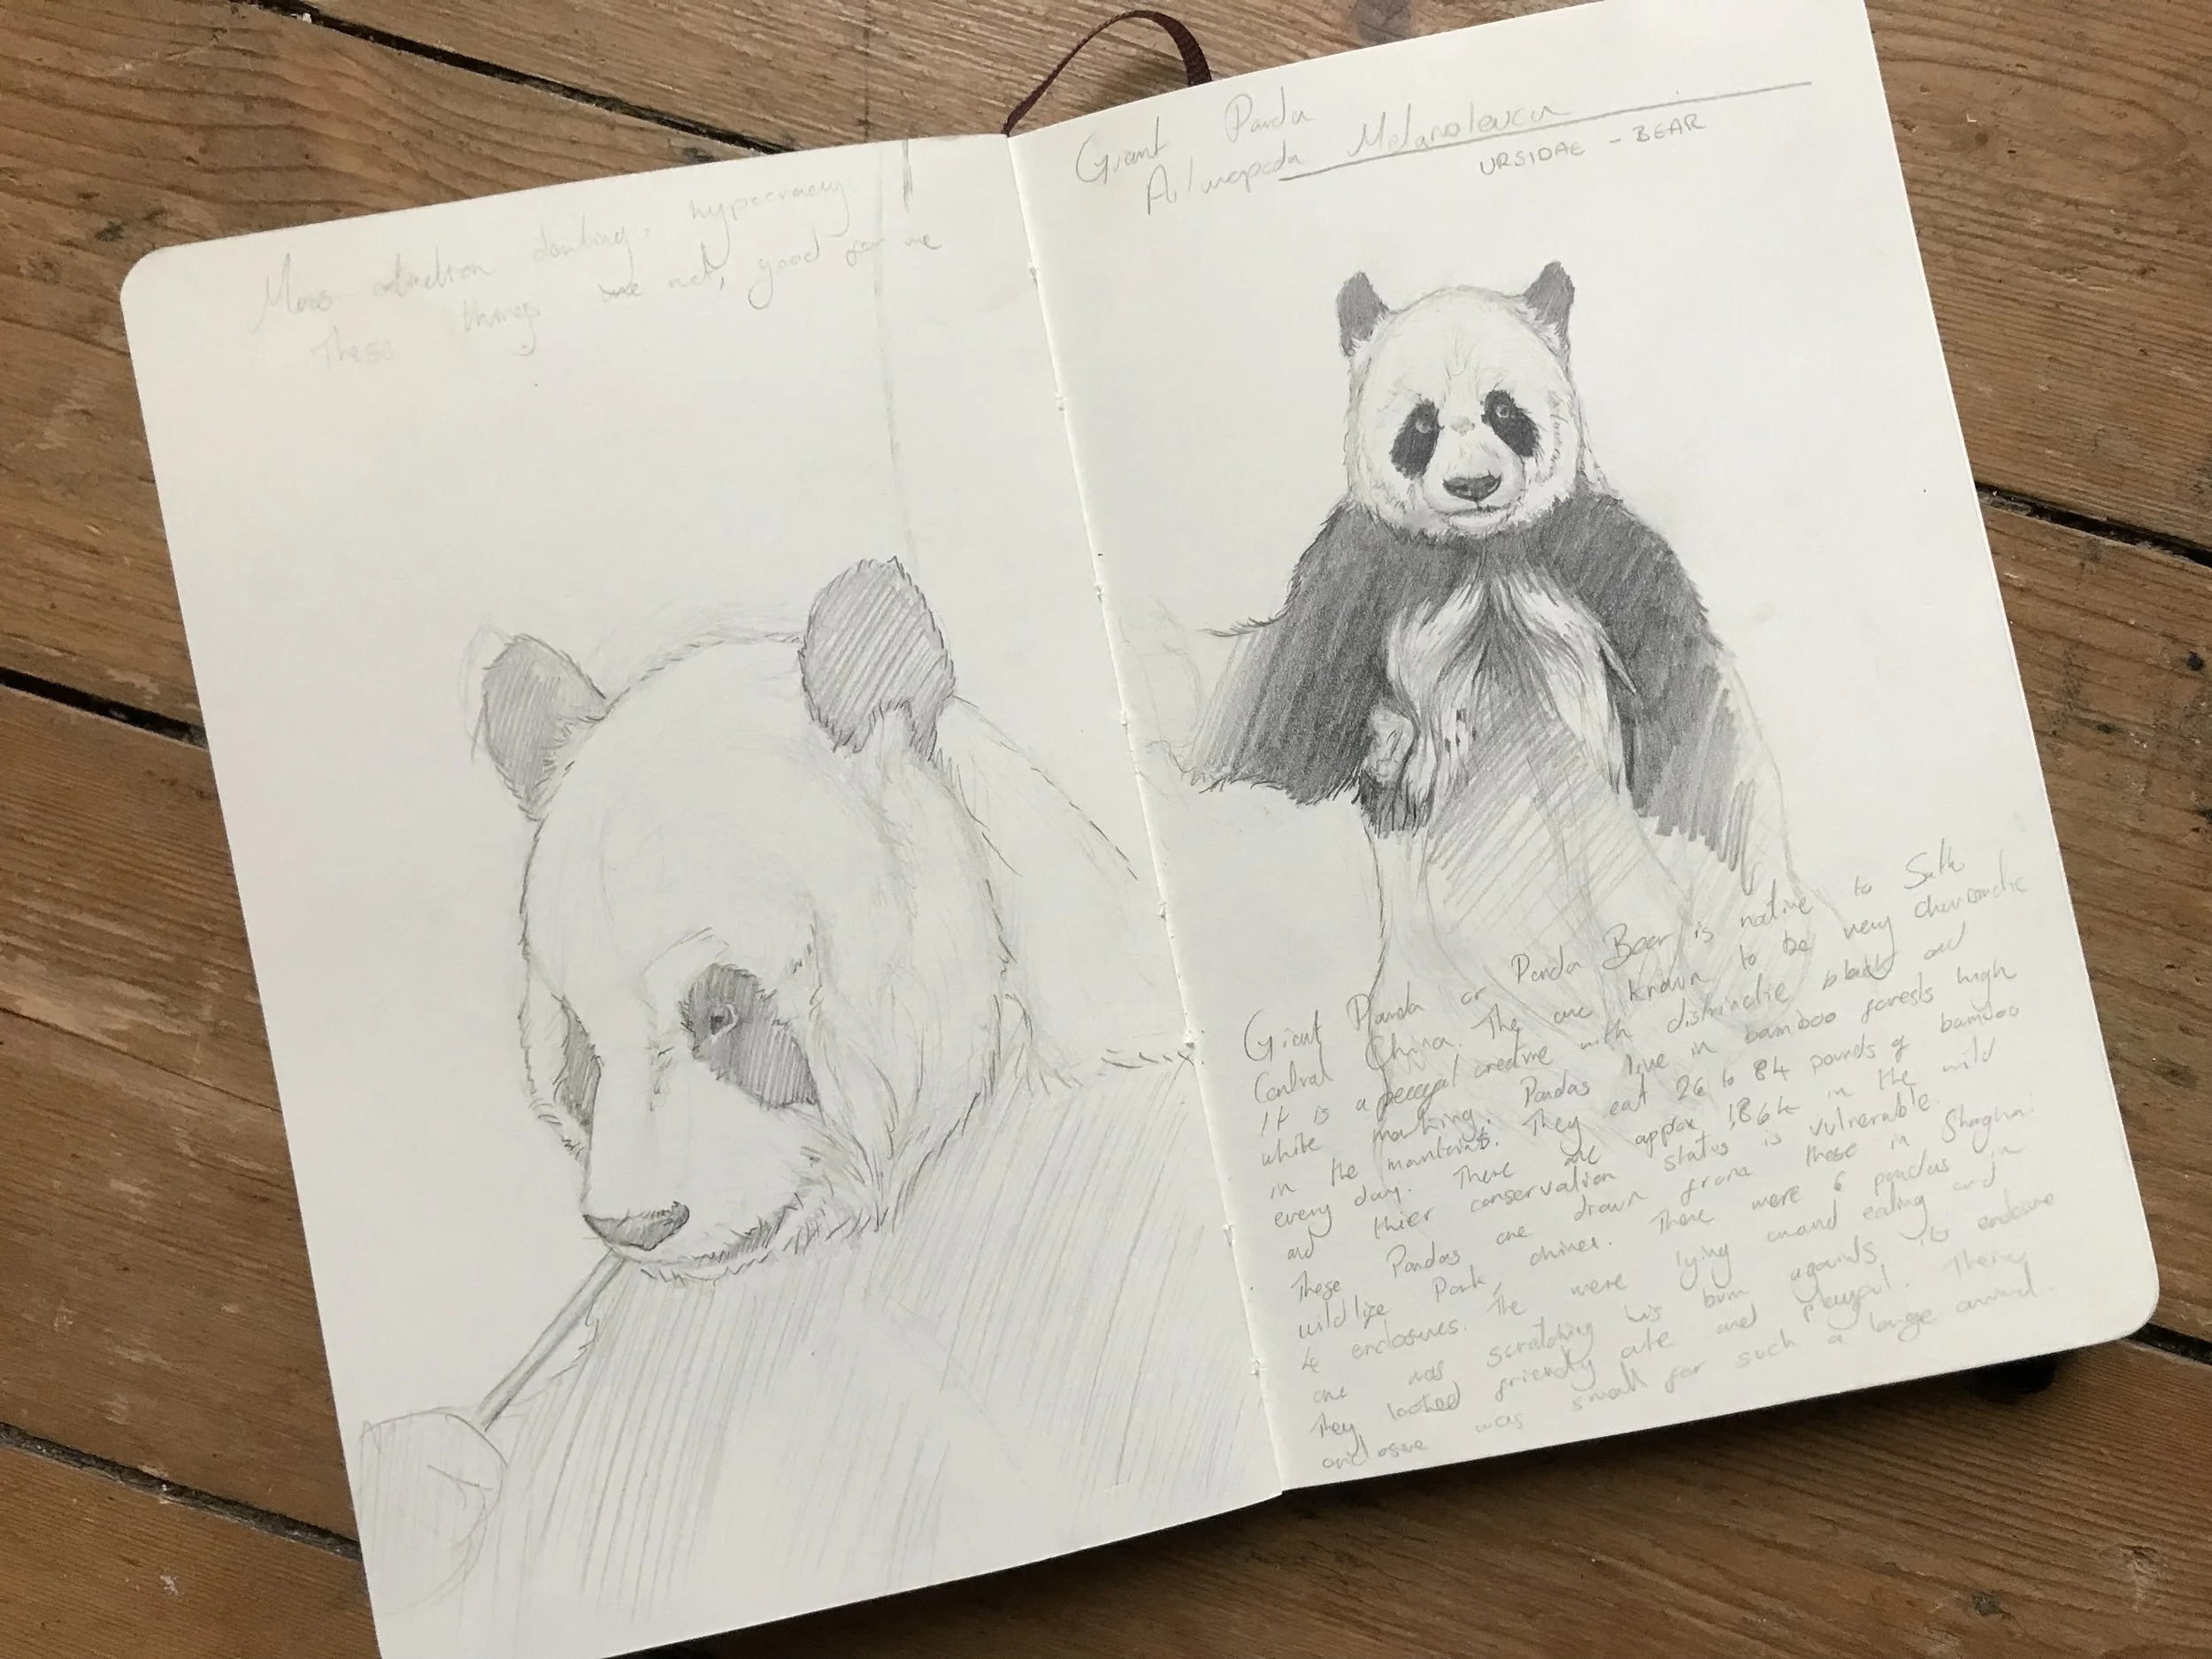 Mass extinction dawling, hypocracy
These things are not good for me
Giant Panda
Ailuropoda Melanoleuca
URSIDAE - BEAR
Giant Panda or Panda Bear is native to Soth
Central China. The are known to be very charismatic
It is a peacful creature with distrinctie black and
white marking. Pandas live in bamboo forests high
in the mantains. They eat 26 to 84 pounds of bamboo
every day. There are approx 1864 in the wild
and thier conservation status is vulnerable.
These Pandas are drawn from those in Shaghai
wildlife Park, china. There were 6 pandas in
4 enclosures. The were lying around eating and
one was scratching his bum agands its enclosure
They looked friendly cute and playful. Their
enclosue was small for such a large animal.